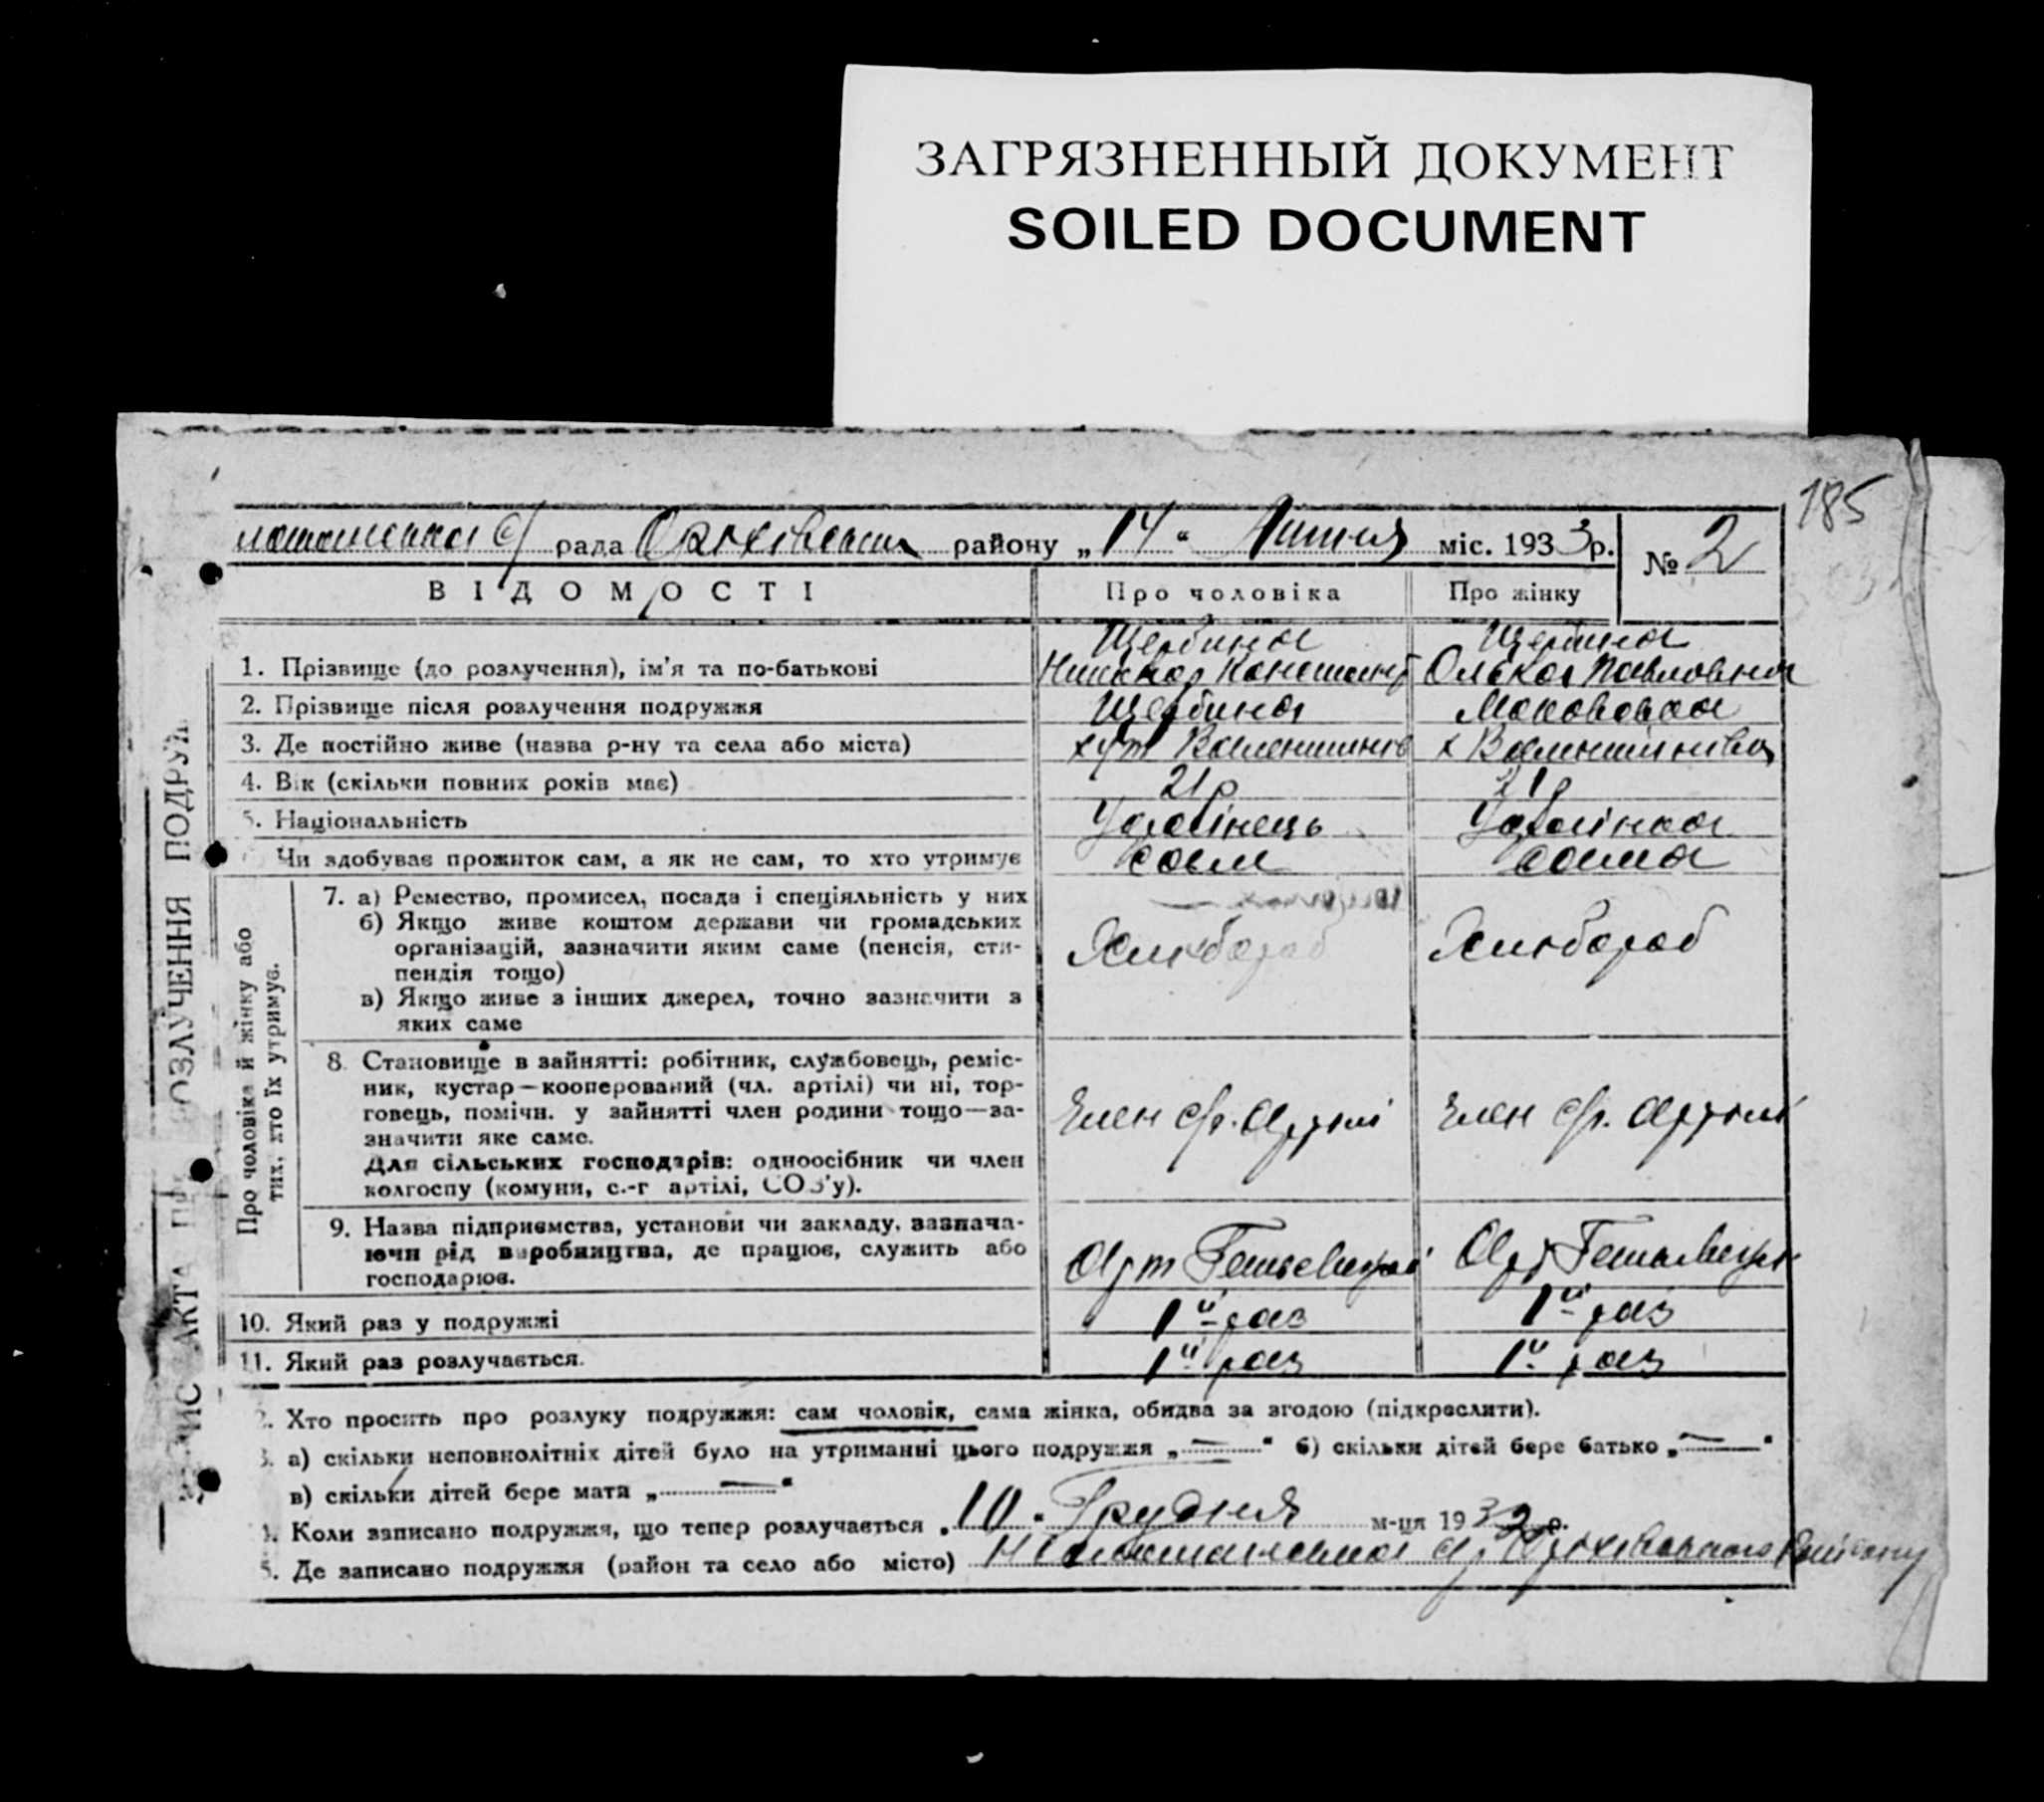 ЗАГРЯЗНЕННЫЙ ДОКУМЕНТ
SOILED DOCUMENT
185
рада Оріхівськи району „14“ Липня міс. 1933р. № 2
ВІДОМОСТІ Про чоловіка Про жінку
Щербина Щербина
1. Прізвище (до розлучення), ім'я та по-батькові Олька Павловна
2. Прізвище після розлучення подружжя Щербина Маковська
3. Де постійно живе (назва р-ну та села або міста) хут х
4. Вік (скільки повних років має) 21р 21р
5. Національність Українець Українка
Чи здобуває прожиток сам, а як не сам, то хто утримує сам сама
Про чоловіка й жінку або тих, хто їх утримує.
7. а) Ремество, промисел, посада і спеціяльність у них
б) Якщо живе коштом держави чи громадських
організацій, зазначити яким саме (пенсія, сти-
пендія тощо) Хлібороб Хлібороб
в) Якщо живе з інших джерел, точно зазначити з
яких саме
8. Становище в зайнятті: робітник, службовець, реміс-
ник, кустар—кооперований (чл. артілі) чи ні, тор-
говець, помічн. у зайнятті член родини тощо—за- Член с/г. Артілі Член с/г. Артілі
значити яке саме.
Для сільських господарів: одноосібник чи член
колгоспу (комуни, с.-г артілі, СОЗ'у).
9. Назва підприємства, установи чи закладу, зазнача-
ючи рід виробництва, де працює, служить або Арт Арт
господарює.
10. Який раз у подружжі 1й раз 1й раз
11. Який раз розлучається. 1й раз 1й раз
Хто просить про розлуку подружжя: сам чоловік, сама жінка, обидва за згодою (підкреслити).
а) скільки неповнолітніх дітей було на утриманні цього подружжя „—“ б) скільки дітей бере батько „—“
в) скільки дітей бере мати „—“
Коли записано подружжя, що тепер розлучається „10“ Грудня м-ця 1932 р.
5. Де записано подружжя (район та село або місто) с/р Оріхівського Району